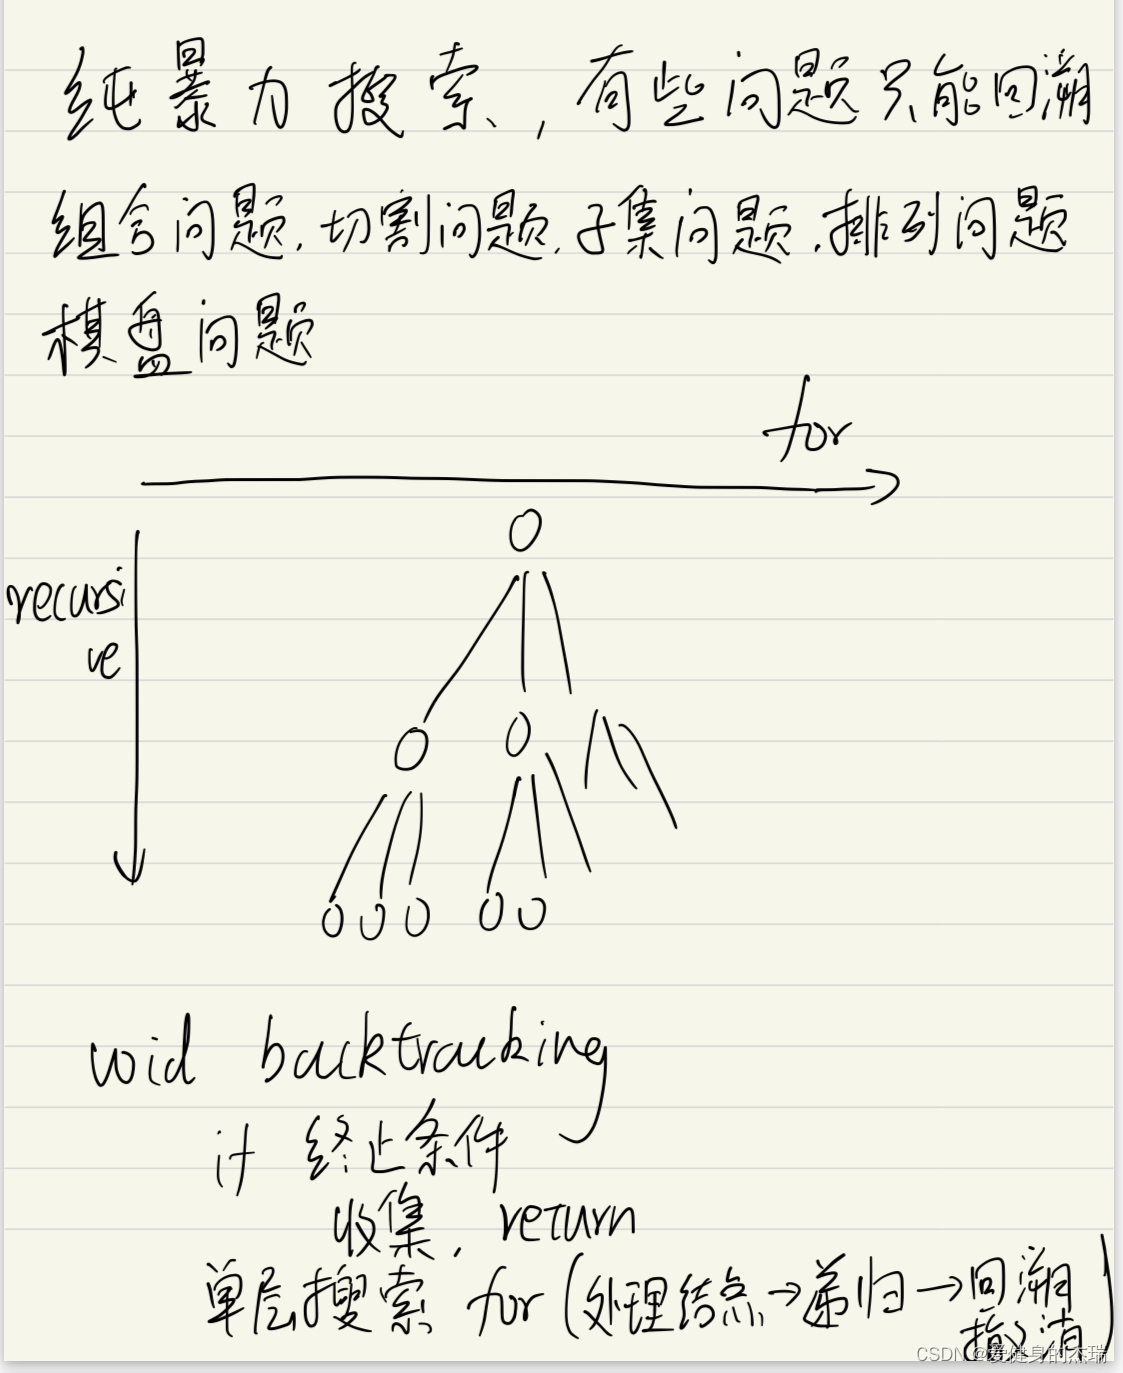 纯暴力搜索，有些问题只能回溯
组合问题.切割问题.子集问题.排列问题
棋盘问题
for
recursi
ve
void backtracking
if 终止条件
收集, return
单层搜索 for (处理结点→递归→回溯
撤消)
CSDN @爱健身的杰瑞